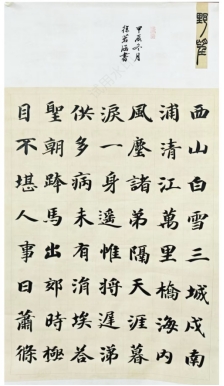 野望
西山白雪三城戍南
浦清江萬里橋海內
風塵諸弟隔天涯暮
淚一身遙惟將遲涕
供多病未有涓埃答
聖朝跨馬出郊時極
目不堪人事日蕭條
甲辰冬月
徐若涵書